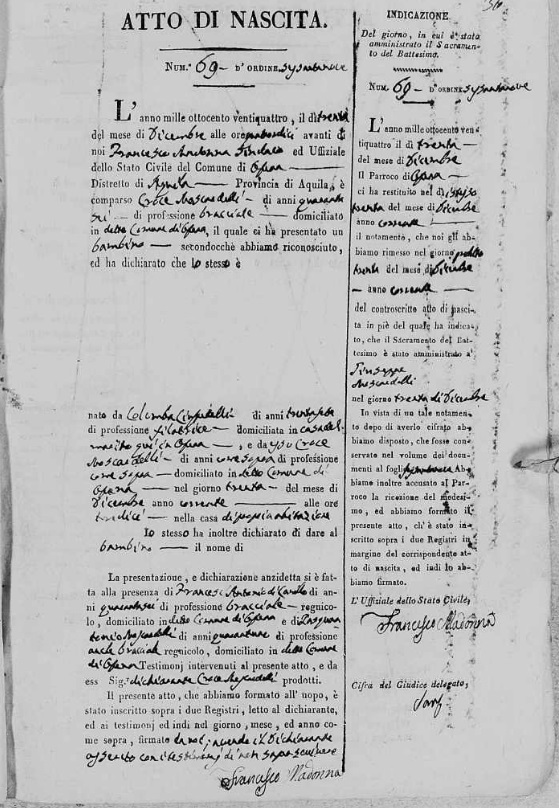 ATTO DI NASCITA.
NUM.º 69 D' ORDINE
L' anno mille ottocento ventiquattro, il dì trenta
del mese di Dicembre alle ore avanti di
noi Francesco Madonna Sindaco ed Uffiziale
dello Stato Civile del Comune di
Distretto di Aquila Provincia di Aquila, è
comparso Croce Moscardelli di anni quaranta
sei di professione bracciale domiciliato
in detto Comune di, il quale ci ha presentato un
bambino secondocchè abbiamo riconosciuto,
ed ha dichiarato che lo stesso è
nato da Columba di anni
di professione filatrice domiciliata in casa del
marito qui in, e da Croce
Moscardelli di anni come sopra di professione
come sopra domiciliato in detto Comune di
nel giorno trenta del mese di
Dicembre anno corrente alle ore
tredici nella casa di propria abitazione
lo stesso ha inoltre dichiarato di dare al
bambino il nome di
La presentazione, e dichiarazione anzidetta si è fat-
ta alla presenza di Francesc'Antonio di Carlo di an-
ni quarantasei di professione bracciale regnico-
lo, domiciliato in detto Comune di e di
Moscardelli di anni di professione
anche bracciale regnicolo, domiciliato in detto Comune
di Testimonj intervenuti al presente atto, e da
ess Sig.r dichiarante Croce Moscardelli prodotti.
Il presente atto, che abbiamo formato all' uopo, è
stato inscritto sopra i due Registri, letto al dichiarante,
ed ai testimonj ed indi nel giorno, mese, ed anno co-
me sopra, firmato da noi, avendo il Dichiarante
asserito con i testimonj di non saper scrivere
Francesco Madonna
INDICAZIONE
Del giorno, in cui è stato
amministrato il Sacramen-
to del Battesimo.
NUM. 69 D' ORDINE
L' anno mille ottocento ven-
tiquattro il dì trenta
del mese di Dicembre
Il Parroco di
ci ha restituito nel dì istesso
trenta del mese di Dicembre
anno corrente
il notamento, che noi gli ab-
biamo rimesso nel giorno predetto
trenta del mese di Dicembre
anno corrente
del controscritto atto di nasci-
ta in piè del quale ha indica-
to, che il Sacramento del Bat-
tesimo è stato amministrato a
Giuseppe
Moscardelli
nel giorno trenta di Dicembre
In vista di un tale notamen-
to depo di averlo cifrato ab-
biamo disposto, che fosse con-
servato nel volume dei docu-
menti al foglio Ab-
biamo inoltre accusato al Par-
roco la ricezione del medesi-
mo, ed abbiamo formato il
presente atto, ch' è stato in-
scritto sopra i due Registri in
margine del corrispondente at-
to di nascita, ed indi lo ab-
biamo firmato.
L' Uffiziale dello Stato Civile,
Francesco Madonna
Cifra del Giudice delegato,